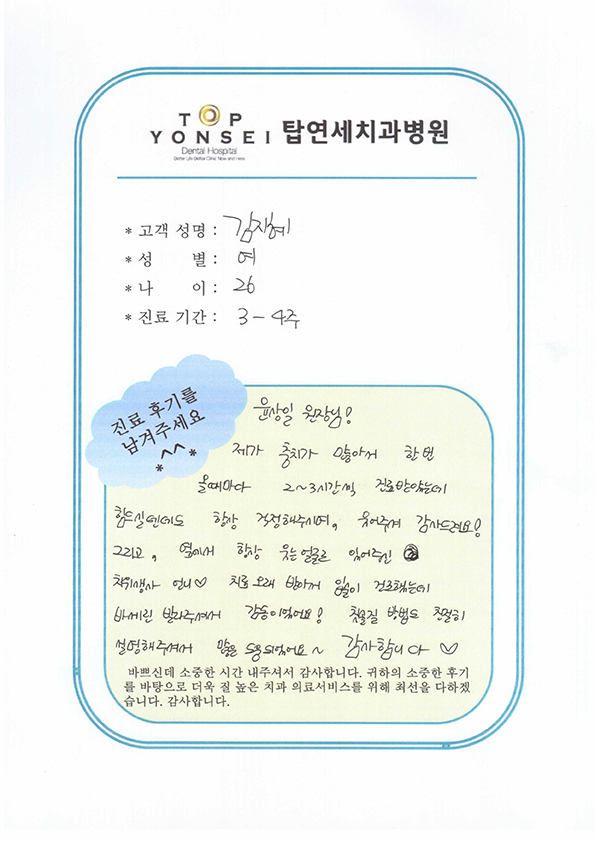 TOP
YONSEI 탑연세치과병원
Dental Hospital
Better Life Better Clinic Now and Here
* 고객 성명 : 김재혜
* 성 별 : 여
* 나 이 : 26
* 진료 기간 : 3-4주
진료 후기를
남겨주세요
* ^^ *
윤상일 원장님!
제가 충치가 많아서 한번
올때마다 2~3시간씩 진료받았는데
힘드실텐데도 항상 걱정해주시며, 웃어주셔 감사드려요!
그리고, 옆에서 항상 웃는얼굴로 있어주신
치위생사 언니♡ 치료 오래 받아서 입술이 건조했는데
바세린 발라주셔서 감동이었어요! 칫솔질 방법도 친절히
설명해주셔서 많은 도움되었어요~ 감사합니다 ♡
바쁘신데 소중한 시간 내주셔서 감사합니다. 귀하의 소중한 후기
를 바탕으로 더욱 질 높은 치과 의료서비스를 위해 최선을 다하겠
습니다. 감사합니다.